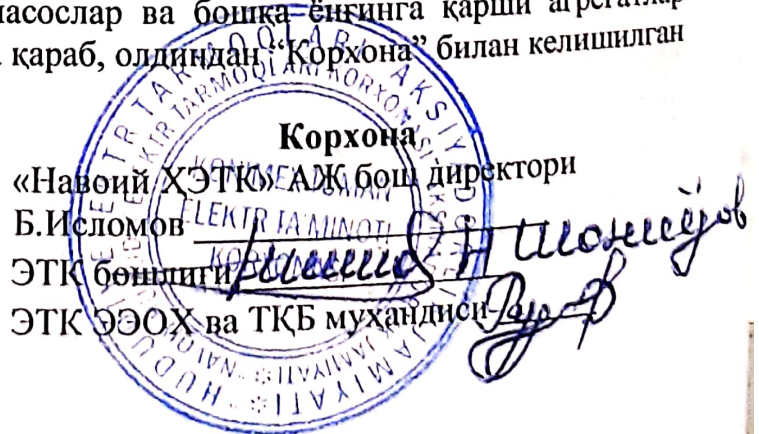 насослар ва бошқа ёнғинга қарши агрегатлар
қараб, олдиндан “Корхона” билан келишилган
Корхона
«Навоий ҲЭТК» АЖ бош директори
Б.Исломов
ЭТК бошлиғи
ЭТК ЭЭОХ ва ТҚБ муҳандиси
ELEKTR TARMOQLARI AKSIYADORLIK JAMIYATI * "HUDUDIY
ELEKTR TARMOQLARI KORXONASI
ELEKTR TA'MINOTI